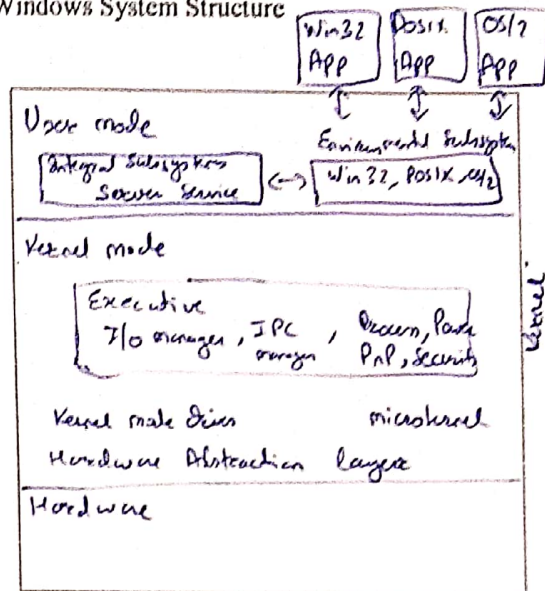 Windows System Structure
Win32 App
Posix App
OS/2 App
User mode
Environmental Subsystem
Integral Subsystem
Server Service
Win 32, POSIX, OS/2
Kernel mode
Executive
I/O manager, IPC manager, Process, Power
PnP, Security
Kernel mode Driver microkernel
Hardware Abstraction layer
Hardware
Kernel